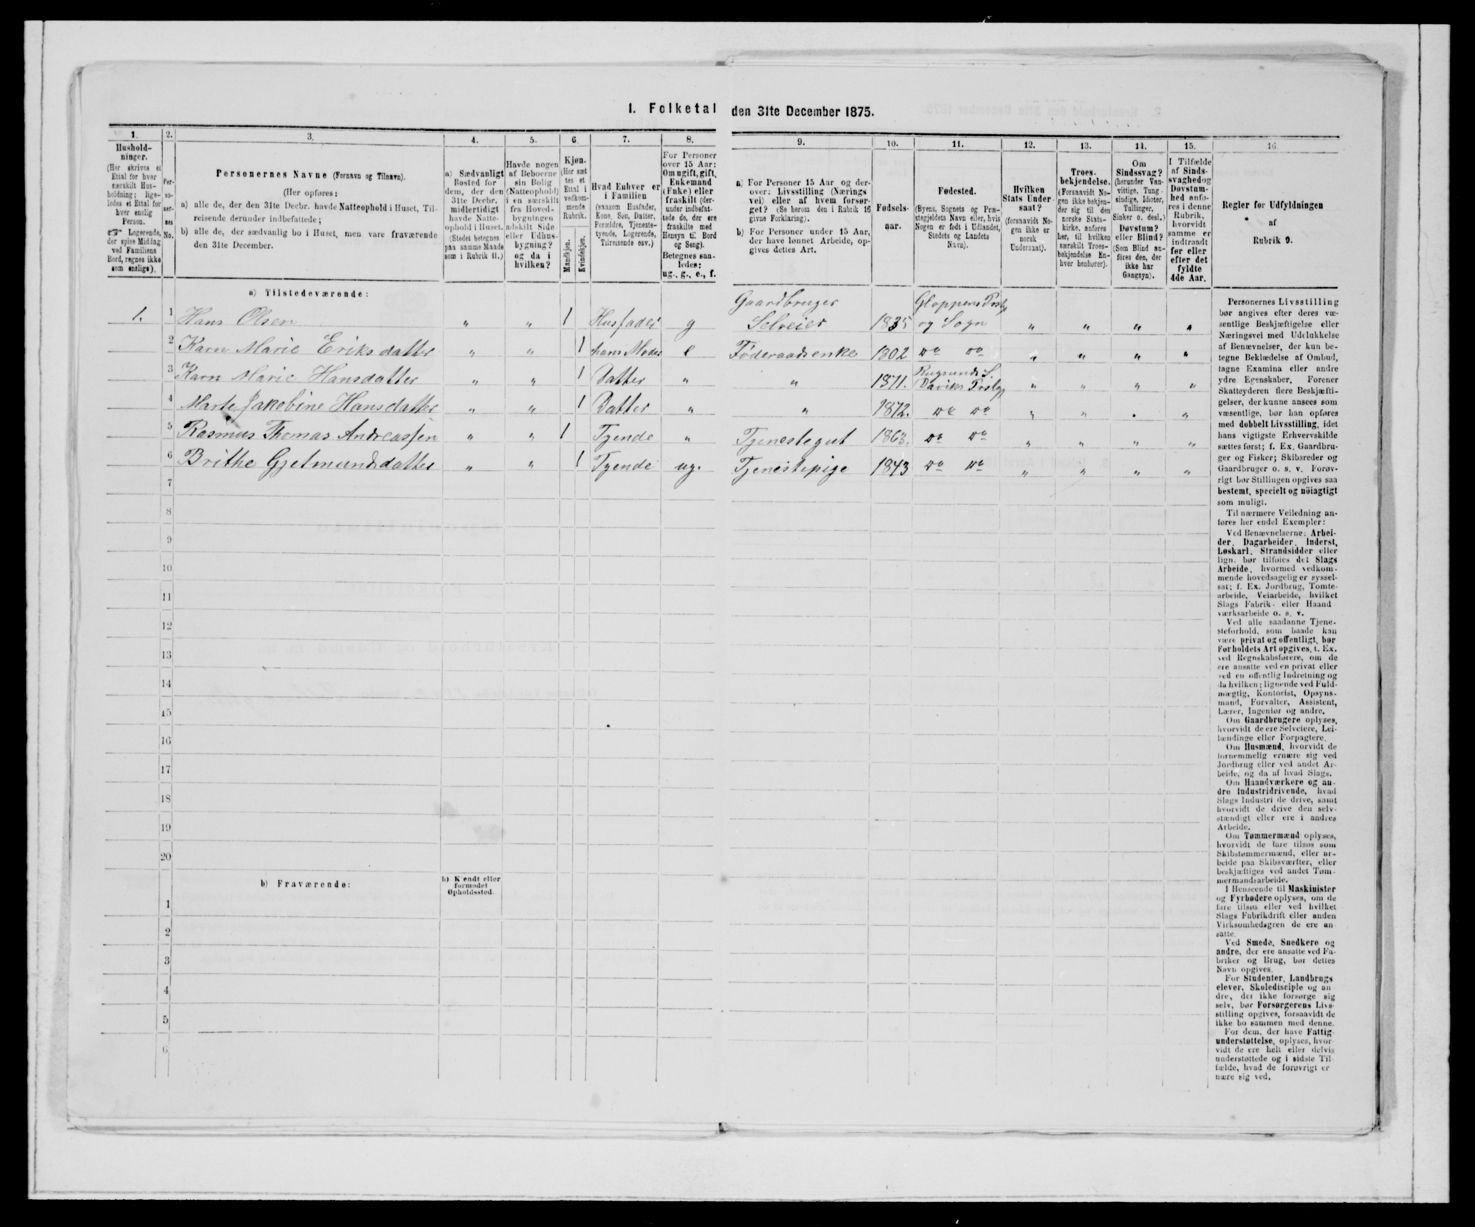 I. Folketal den 31te December 1875.
1.
2.
3.
4.
5.
6.
7.
8.
9.
10.
11.
12.
13.
14.
15.
16
Hushold-
ninger.
(Her skrives et
Ettal for hver
særskilt Hus-
holdning; lige-
ledes et Ettal for
hver enslig
Person.
☞ Logerende,
der spise Middag
ved Familiens
Bord, regnes ikke
som enslige).
Per-
so-
ner-
nes
No.
Personernes Navne (Fornavn og Tilnavn).
(Her opføres:
a) alle de, der den 31te Decbr. havde Natteophold i Huset, Til-
reisende derunder indbefattede;
b) alle de, der sædvanlig bo i Huset, men vare fraværende
den 31te December.
a) Sædvanligt
Bosted for
dem, der den
31te Decbr.
midlertidigt
havde Natte-
ophold i Huset.
(Stedet betegnes
paa samme Maade
som i Rubrik 11.)
Havde nogen
af Beboerne
sin Bolig
(Natteophold)
i en særskilt
fra Hoved-
bygningen
adskilt Side-
eller Udhus-
bygning?
og da i
hvilken?
Kjøn.
(Her sæt-
tes et
Ettal i
vedkom-
mende
Rubrik.
Mandkjøn.
Kvindekjøn.
Hvad Enhver er
i Familien
(saasom Husfader,
Kone, Søn, Datter,
Forældre, Tjeneste-
tyende, Logerende,
Tilreisende osv.)
For Personer
over 15 Aar:
Om ugift, gift,
Enkemand
(Enke) eller
fraskilt (der-
under indbefat-
tede de, der ere
fraskilte med
Hensyn til Bord
og Seng).
Betegnes saa-
ledes:
ug., g., e., f.
a) For Personer 15 Aar og der-
over: Livsstilling (Nærings-
vei) eller af hvem forsør-
get? (Se herom den i Rubrik 16
givne Forklaring).
b) For Personer under 15 Aar,
der have lønnet Arbeide, op-
gives dettes Art.
Fødsels-
aar.
Fødested.
(Byens, Sognets og Præ-
stegjeldets Navn eller, hvis
Nogen er født i Udlandet,
Stedets og Landets
Navn).
Hvilken
Stats Under-
saat?
(forsaavidt No-
gen ikke er
norsk
Undersaat).
Troes-
bekjendelse.
(Forsaavidt No-
gen ikke bekjen-
der sig til den
norske Stats-
kirke, anføres
her, til hvilken
særskilt Troes-
bekjendelse En-
hver henhører).
Om
Sindssvag?
(herunder Van-
vittige, Tung-
sindige, Idioter,
Tullinger,
Sinker o. desl.)
Døvstum?
eller Blind?
(Som Blind an-
føres den, der
ikke har
Gangsyn).
I Tilfælde
af Sinds-
svaghed og
Døvstum-
hed anfø-
res i denne
Rubrik,
hvorvidt
samme er
indtraadt
før eller
efter det
fyldte
4de Aar.
Regler for Udfyldningen
af
Rubrik 9.
a) Tilstedeværende:
1. 1 Hans Olsen " " 1 Husfader g Gaardbruger Selveier 1835 Gloppens Prstgj og Sogn " " " "
2 Karn Marie Eriksdatter " " 1 hans Moder e Føderaadsenke 1802 do do " " " "
3 Karn Marie Hansdatter " " 1 Datter " " 1871. Rugsunds S. Daviks Prstgj " " " "
4 Marte Jakobine Hansdatter " " 1 Datter " " 1872. do do " " . "
5 Rasmus Thomas Andreassen " " 1 Tyende " Tjenestegut 1863. do do " " " "
6 Brithe Gjetmundsdatter " " 1 Tyende ug. Tjenestepige 1843 do do " " " "
7
8
9
10
11
12
13
14
15
16
17
18
19
20
b) Fraværende:
b) Kjendt eller
formodet
Opholdssted.
1
2
3
4
5
6
Personernes Livsstilling
bør angives efter deres væ-
sentlige Beskjæftigelse eller
Næringsvei med Udelukkelse
af Benævnelser, der kun be-
tegne Beklædelse af Ombud,
tagne Examina eller andre
ydre Egenskaber. Forener
Skatteyderen flere Beskjæfti-
gelser, der kunne ansees som
væsentlige, bør han opføres
med dobbelt Livsstilling, idet
hans vigtigste Erhvervskilde
sættes først; f. Ex. Gaardbru-
ger og Fisker; Skibsreder og
Gaardbruger o. s. v. Forøv-
rigt bør Stillingen opgives saa
bestemt, specielt og nöiagtigt
som muligt.
Til nærmere Veiledning an-
føres her endel Exempler:
Ved Benævnelserne: Arbei-
der, Dagarbeider, Inderst,
Løskarl, Strandsidder eller
lign. bør tilføies det Slags
Arbeide, hvormed vedkom-
mende hovedsagelig er syssel-
sat; f. Ex. Jordbrug, Tomte-
arbeide, Veiarbeide, hvilket
Slags Fabrik- eller Haand-
værksarbeide o. s. v.
Ved alle saadanne Tjene-
steforhold, som baade kan
være privat og offentligt, bør
Forholdets Art opgives, t. Ex.
ved Regnskabsførere, om de
ere ansatte ved en privat eller
ved en offentlig Indretning og
da hvilken; lignende ved Fuld-
mægtig, Kontorist, Opsyns-
mand, Forvalter, Assistent,
Lærer, Ingeniør og andre.
Om Gaardbrugere oplyses,
hvorvidt de ere Selveiere, Lei-
lændinge eller Forpagtere.
Om Husmænd, hvorvidt de
fornemmelig ernære sig ved
Jordbrug eller ved andet Ar-
beide, og da af hvad Slags.
Om Haandværkere og an-
dre Industridrivende, hvad
Slags Industri de drive, samt
hvorvidt de drive den selv-
stændigt eller ere i andres
Arbeide.
Om Tømmermænd oplyses,
hvorvidt de fare tilsøs som
Skibstømmermænd, eller ar-
beide paa Skibsværfter, eller
beskjæftiges ved andet Tøm-
mermandsarbeide.
I Henseende til Maskinister
og Fyrbødere oplyses, om de
fare tilsøs eller ved hvilket
Slags Fabrikdrift eller anden
Virksomhedsgren de ere an-
satte.
Ved Smede, Snedkere og
andre, der ere ansatte ved Fa-
briker og Brug, bør dettes
Navn opgives.
For Studenter, Landbrugs-
elever, Skoledisciple og an-
dre, der ikke forsørge sig
selv, bør Forsørgerens Livs-
stilling opgives, forsaavidt de
ikke bo sammen med denne.
For dem, der have Fattig-
understøttelse, oplyses, hvor-
vidt de ere helt eller delvis
understøttede og i sidste Til-
fælde, hvad de forøvrigt er-
nære sig ved.